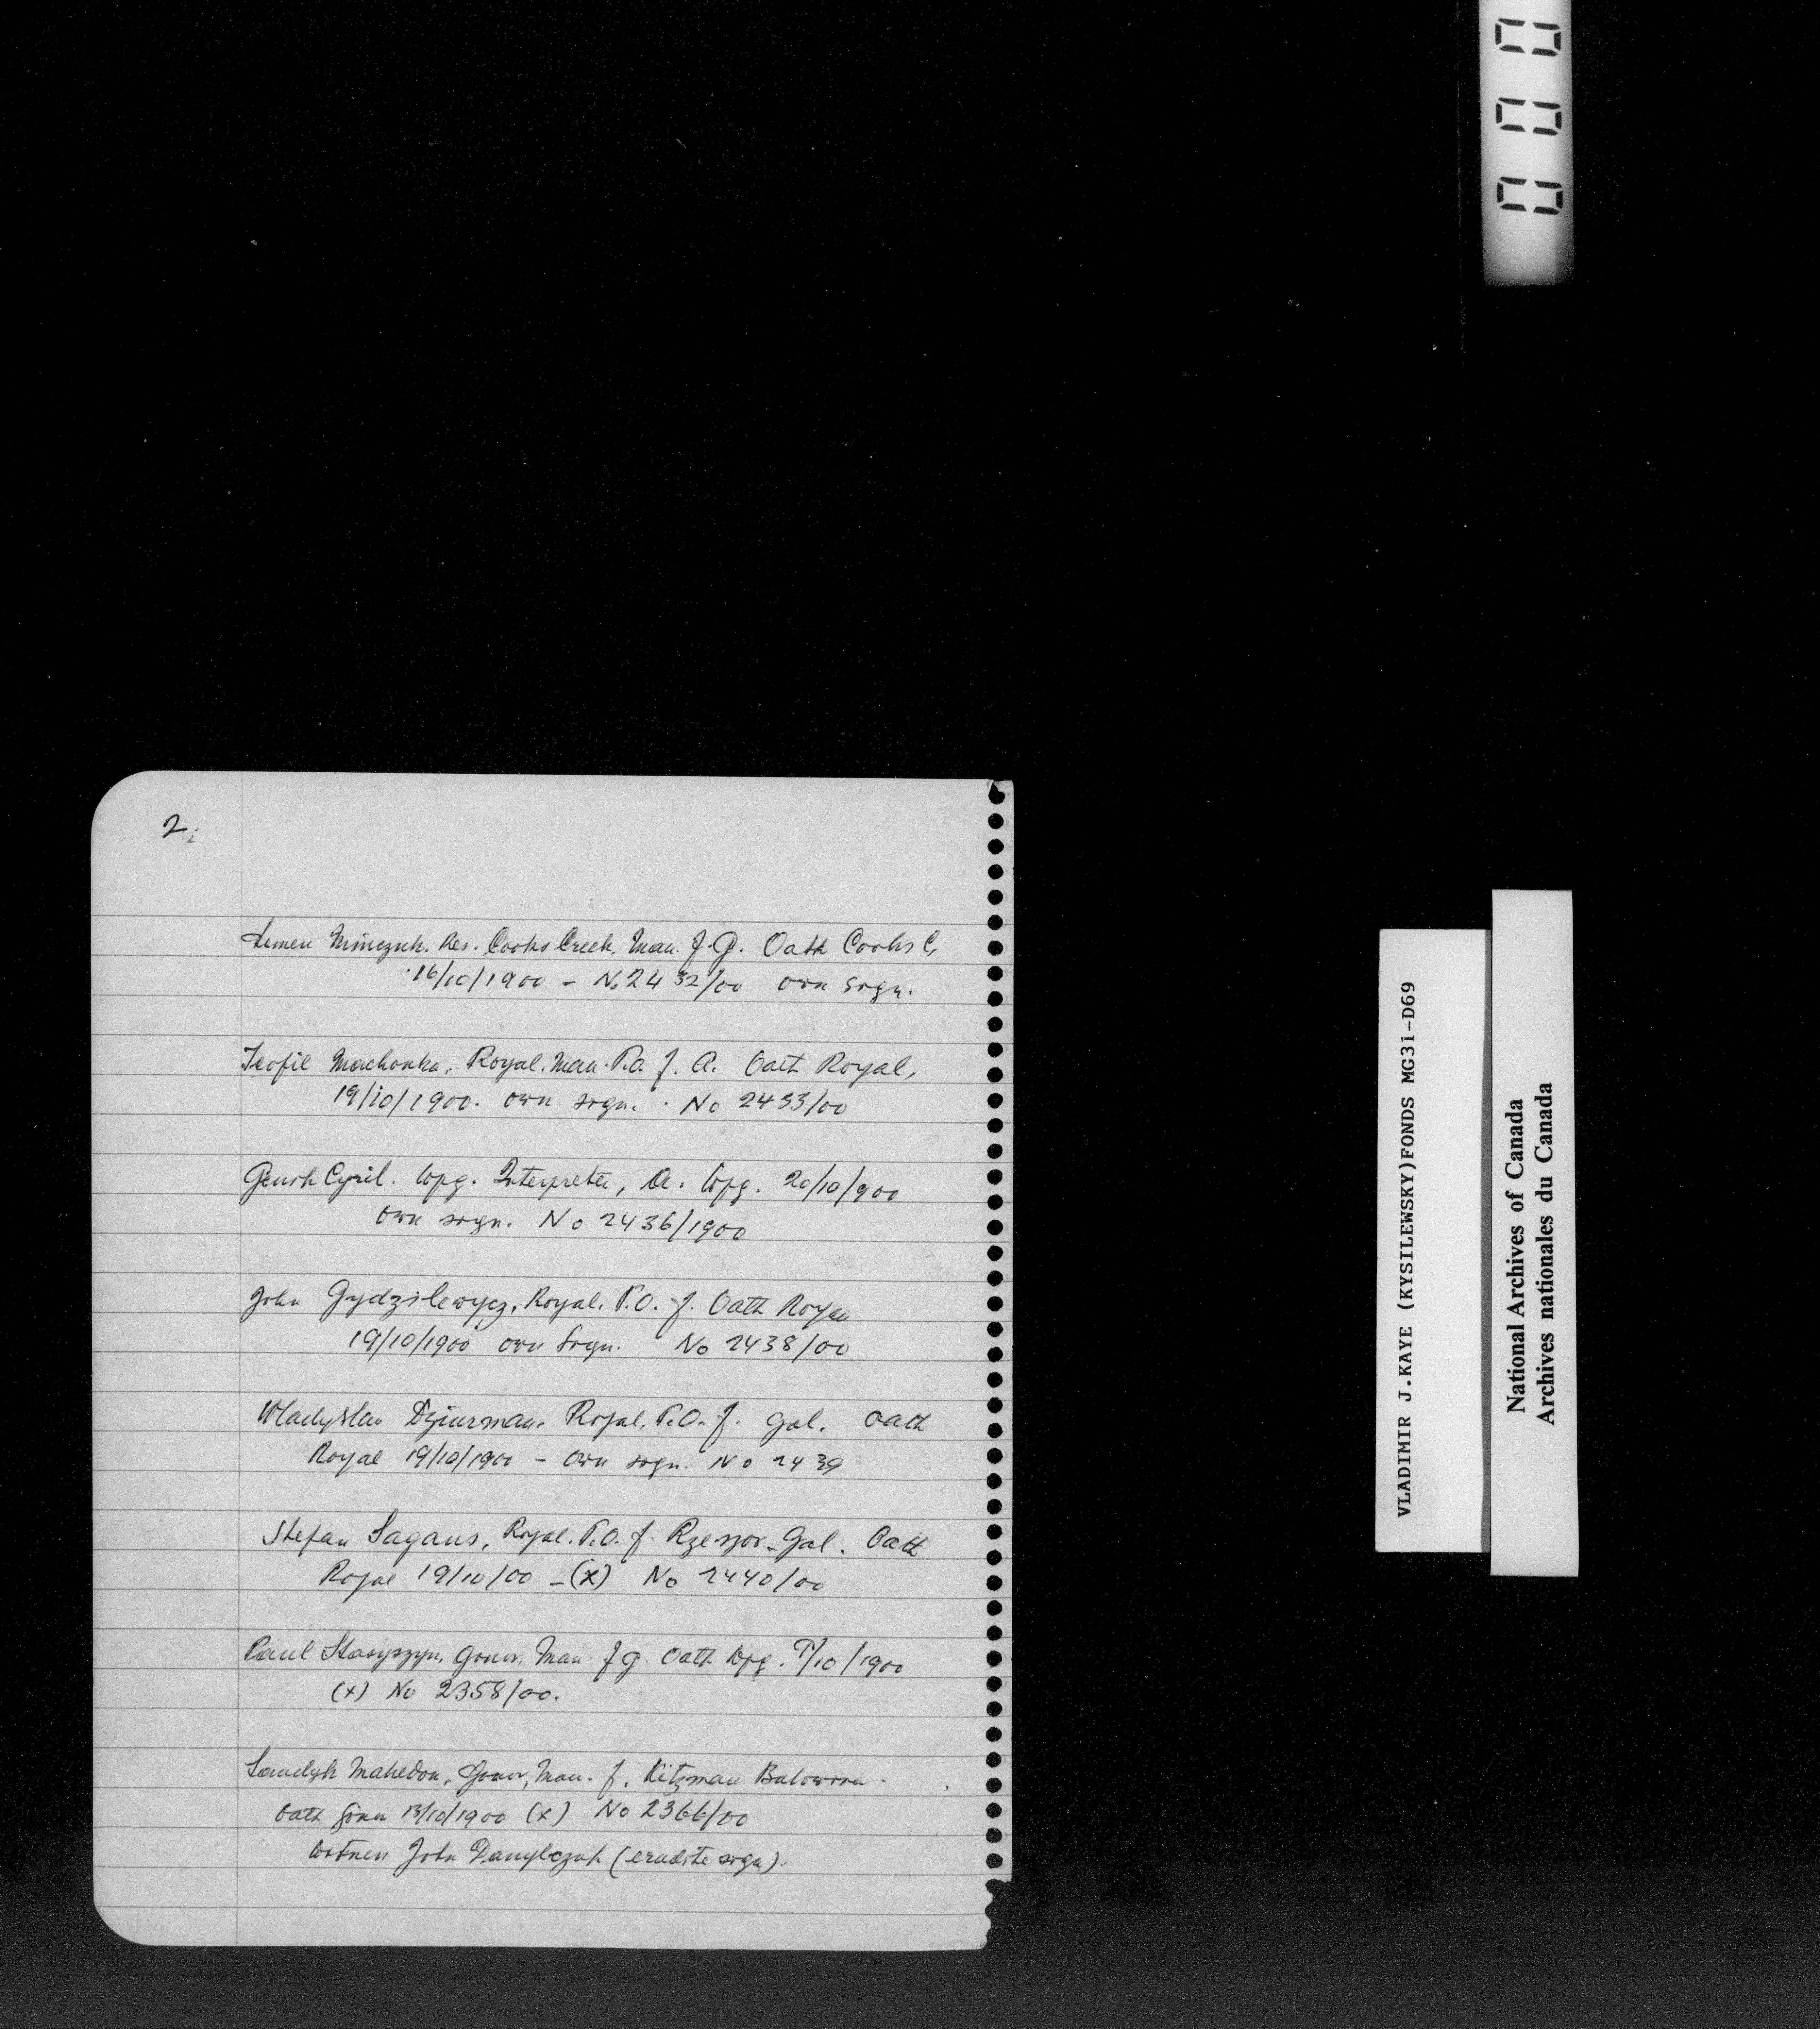 2.
Semen Minczuk. Res. Cooks Creek, Man. f. G. Oath Cooks C.
16/10/1900 - No 2432/00 own sign.
Teofil Machonka, Royal. Man. P.O. f. A. Oath Royal,
19/10/1900. own sign. . No 2433/00
Genik Cyril. Wpg. Interpreter, A. Wpg. 20/10/900
own sign. No 2436/1900
John Gydzilewycz, Royal. P.O. f. Oath Royal
19/10/1900 own sign. No 2438/00
Wladyslav Dziurman. Royal. P.O. f. Gal. Oath
Royal 19/10/1900 - own sign. No 2439
Stefan Sagans, Royal. P.O. f. Rzeszov - Gal. Oath
Royal 19/10/00 - (x) No 2440/00
Paul Stasyszyn, Gonor, Man. f G. Oath Wpg. /10/1900
(x) No 2358/00.
Mahedon, Gonor, Man. f. Kitzman Bukowina.
Oath Gonor 13/10/1900 (x) No 2366/00
Witness John Danylczuk (erudite sign).
000
VLADIMIR J.KAYE (KYSILEWSKY)FONDS MG31-D69
National Archives of Canada
Archives nationales du Canada